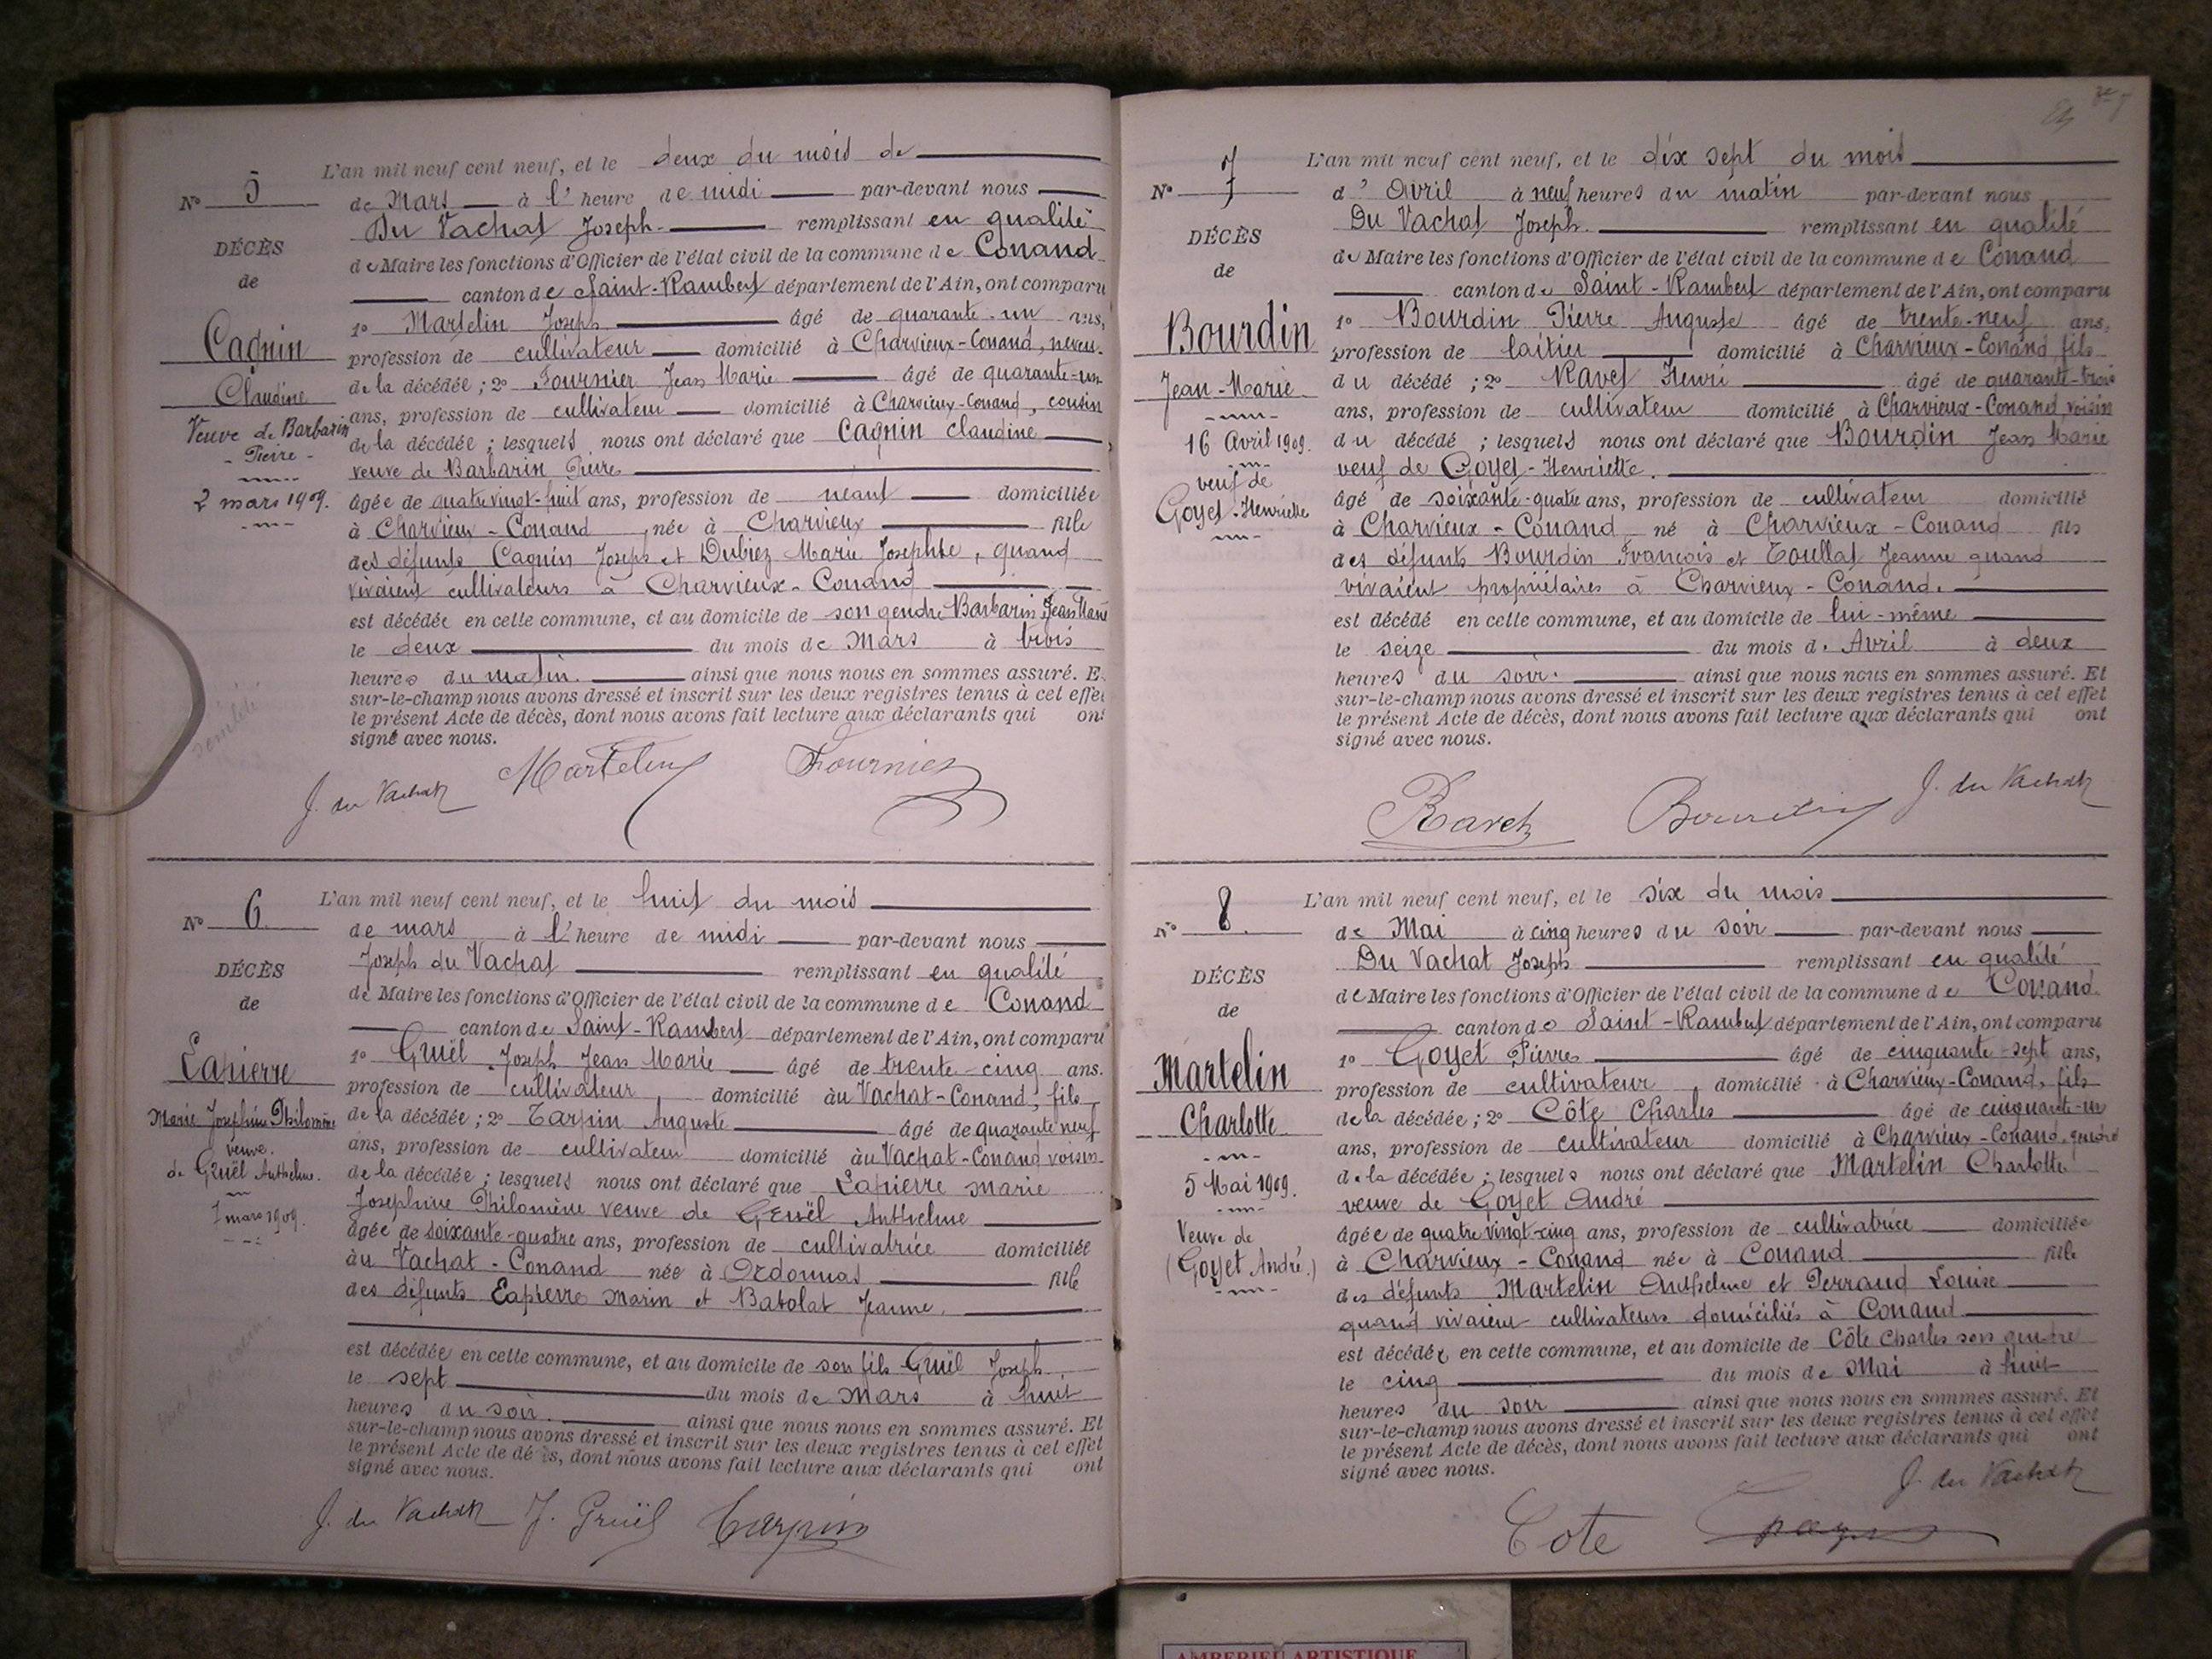 L'an mil neuf cent neuf, et le deux du mois de
N° 5
de Mars à l'heure de midi par-devant nous
Du Vachat Joseph remplissant en qualité
DÉCÈS
de Maire les fonctions d'Officier de l'état civil de la commune de Conand
de
canton de Saint-Rambert département de l'Ain, ont comparu
1° Martelin Joseph âgé de quarante-un ans,
Cagnin
profession de cultivateur domicilié à Charvieux-Conand, neveu
Claudine
de la décédée ; 2° Fournier Jean Marie âgé de quarante-un
ans, profession de cultivateur domicilié à Charvieux-Conand, cousin
Veuve de Barbarin
- Pierre -
de la décédée ; lesquels nous ont déclaré que Cagnin Claudine
veuve de Barbarin Pierre
2 mars 1909.
âgée de quatre vingt-huit ans, profession de néant domiciliée
à Charvieux-Conand née à Charvieux fille
des défunts Cagnin Joseph et Dubiez Marie Josephte, quand
vivaient cultivateurs à Charvieux-Conand
est décédée en cette commune, et au domicile de son gendre Barbarin Jean Marie
le deux du mois de Mars à trois
heures du matin. ainsi que nous nous en sommes assuré. E
sur-le-champ nous avons dressé et inscrit sur les deux registres tenus à cet effe
le présent Acte de décès, dont nous avons fait lecture aux déclarants qui ont
signé avec nous.
J. du Vachat Martelin Fournier
L'an mil neuf cent neuf, et le huit du mois
N° 6
de mars à l'heure de midi par-devant nous
Joseph du Vachat remplissant en qualité
DÉCÈS
de Maire les fonctions d'Officier de l'état civil de la commune de Conand
de
canton de Saint-Rambert département de l'Ain, ont comparu
1° Gruël Joseph Jean Marie âgé de trente-cinq ans.
Lapierre
profession de cultivateur domicilié au Vachat-Conand, fils
Marie Joséphine Philomène
de la décédée ; 2° Tarpin Auguste âgé de quarante neuf
veuve.
ans, profession de cultivateur domicilié au Vachat-Conand voisin
de Gruël Anthelme.
de la décédée ; lesquels nous ont déclaré que Lapierre Marie
7 mars 1909.
Josephine Philomène veuve de Gruël Anthelme
âgée de soixante-quatre ans, profession de cultivatrice domiciliée
au Vachat-Conand née à Ordonnas fille
des défunts Lapierre Marin et Babolat Jeanne.
est décédée en cette commune, et au domicile de son fils Gruël Joseph
le sept du mois de Mars à huit
heures du soir. ainsi que nous nous en sommes assuré. Et
sur-le-champ nous avons dressé et inscrit sur les deux registres tenus à cet effet
le présent Acte de décès, dont nous avons fait lecture aux déclarants qui ont
signé avec nous.
J. du Vachat J. Gruël Tarpin
L'an mil neuf cent neuf, et le dix sept du mois
7
N° 7
d'Avril à neuf heures du matin par-devant nous
Du Vachat Joseph. remplissant en qualité
DÉCÈS
de Maire les fonctions d'Officier de l'état civil de la commune de Conand
de
canton de Saint-Rambert département de l'Ain, ont comparu
1° Bourdin Pierre Auguste âgé de trente-neuf ans,
Bourdin
profession de laitier domicilié à Charvieux-Conand, fils
Jean-Marie
du décédé ; 2° Ravet Henri âgé de quarante-trois
ans, profession de cultivateur domicilié à Charvieux-Conand, voisin
16 Avril 1909.
du décédé ; lesquels nous ont déclaré que Bourdin Jean Marie
veuf de
veuf de Goyet-Henriette.
Goyet-Henriette
âgé de soixante-quatre ans, profession de cultivateur domicilié
à Charvieux-Conand né à Charvieux-Conand fils
des défunts Bourdin François et Toullat Jeanne quand
vivaient propriétaires à Charvieux-Conand.
est décédé en cette commune, et au domicile de lui-même
le seize du mois d'Avril à deux
heures du soir. ainsi que nous nous en sommes assuré. Et
sur-le-champ nous avons dressé et inscrit sur les deux registres tenus à cet effet
le présent Acte de décès, dont nous avons fait lecture aux déclarants qui ont
signé avec nous.
Ravet Bourdin J. du Vachat
L'an mil neuf cent neuf, et le six du mois
N° 8.
de Mai à cinq heures du soir par-devant nous
Du Vachat Joseph remplissant en qualité
DÉCÈS
de Maire les fonctions d'Officier de l'état civil de la commune de Conand.
de
canton de Saint-Rambert département de l'Ain, ont comparu
1° Goyet Pierre âgé de cinquante-sept ans,
Martelin
profession de cultivateur domicilié à Charvieux-Conand, fils
Charlotte
de la décédée ; 2° Côte Charles âgé de cinquante-un
ans, profession de cultivateur domicilié à Charvieux-Conand, gendre
5 Mai 1909.
de la décédée ; lesquels nous ont déclaré que Martelin Charlotte
veuve de Goyet André
Veuve de
âgée de quatre vingt-cinq ans, profession de cultivatrice domiciliée
(Goyet André.)
à Charvieux-Conand née à Conand fille
des défunts Martelin Anthelme et Perraud Louise
quand vivaient cultivateurs domiciliés à Conand
est décédée en cette commune, et au domicile de Côte Charles son gendre
le cinq du mois de Mai à huit
heures du soir ainsi que nous nous en sommes assuré. Et
sur-le-champ nous avons dressé et inscrit sur les deux registres tenus à cet effet
le présent Acte de décès, dont nous avons fait lecture aux déclarants qui ont
signé avec nous.
J. du Vachat
Cote
AMBERIEU ARTISTIQUE